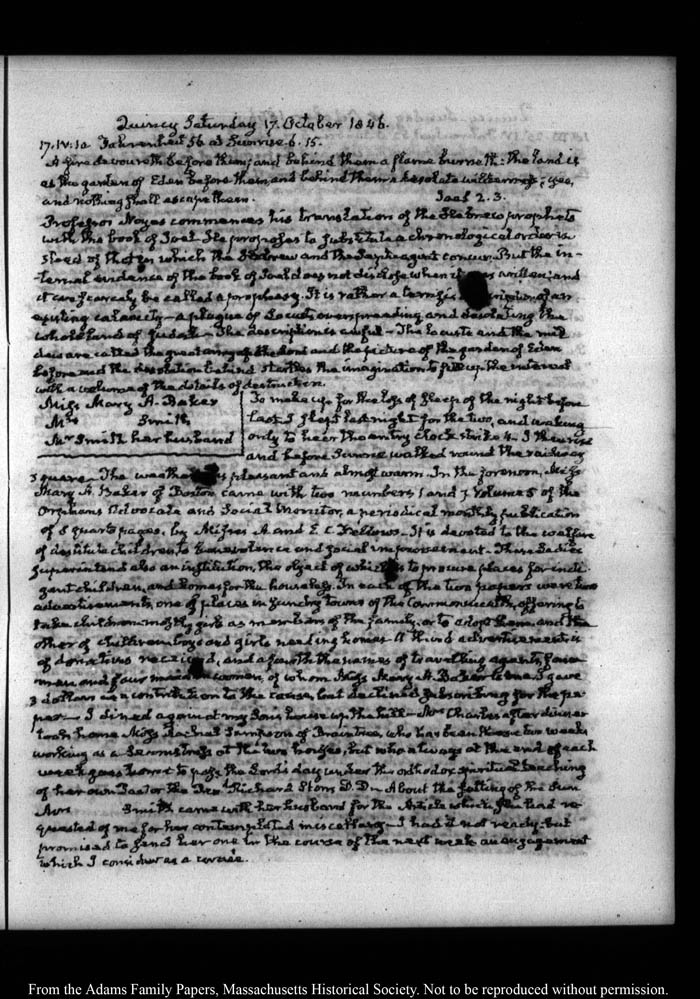 Quincy Saturday 17. October 1846.
17. IV:10 Fahrenheit 56 at Sunrise 6.15.
A fire devoureth before them; and behind them a flame burneth: the land is
as the garden of Eden before them, and behind them a desolate wilderness; yea,
and nothing shall escape them. Joel 2.3.
Professor Noyes commences his translation of the Hebrew prophets
with the book of Joel. He proposes to substitute a chronological order in
stead of that in which the Hebrew and the Septuagint concur. But the in-
ternal evidence of the book of Joel does not disclose when it was written; and
it can scarcely be called a prophesy. It is rather a terrific description of an
existing calamity— a plague of Locusts overspreading and desolating the
whole land of Judah— The description is awful— The locusts and the mil
dew are called the great army of the Lord and the picture of the garden of Eden
before and the desolation behind startles the imagination to fill up the interval
with a volume of the details of destruction.
Miss Mary A. Baker
Mrs Smith
Mr Smith her husband
To make up for the loss of sleep of the night before
last I slept last night for the two, and waking
only to hear the entry clock strike 4. I then rise
and before Sunrise walked round the railway
square— The weather was pleasant and almost warm. In the forenoon, Miss
Mary A. Baker of Boston came with two numbers 1 and 7 Volume 5 of the
Orphans Advocate and Social Monitor, a periodical monthly publication
of 8 quarto pages, by Misses A and E. C. Fellows— It is devoted to the welfare
of destitute children, to benevolence and social improvement. These Ladies
superintend also an institution, the object of which is to procure places for indi
gent children, and homes for the houseless. In each of the two papers were two
advertisements, one of places in sundry towns of the Commonwealth, offering to
take children mostly girls as members of the family, or to adopt them, and the
other of children, boys and girls needing homes. A third advertisement is
of donations received, and a fourth the names of travelling agents, four
men and four women, of whom Miss Mary A. Baker is one. I gave
3 dollars as a contribution to the cause, but declined subscribing for the pa-
per— I dined again at my Sons house up the hill— Mrs Charles after dinner
took home Miss Rachel Sampson of Braintree, who has been these two weeks
working as a Seamstress at the two houses, but who always at the end of each
week goes home to pass the Lord's day under the orthodox spiritual teaching
of her own Pastor the Revd Richard Storrs D.D.— About the setting of the Sun
Mrs Smith came with her husband for the Article which she had re
quested of me for her contemplated miscellany— I had it not ready; but
promised to send her one in the course of the next week an engagement
which I consider as a
From the Adams Family Papers, Massachusetts Historical Society. Not to be reproduced without permission.